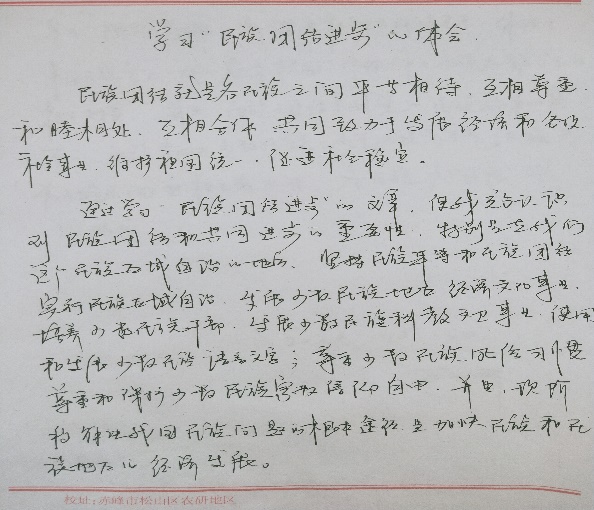 学习“民族团结进步”心体会
民族团结就是各民族之间平等相待、互相尊重
和睦相处、互相合作 共同致力于发展经济和各项
社会事业，维护祖国统一，促进社会稳定。
通过学习“民族团结进步”的文章，使我充分认识
到民族团结和共同进步的重要性，特别是在我们
这个民族区域自治的地方。坚持民族平等和民族团结
实行民族区域自治，发展少数民族地区经济文化事业，
培养少数民族干部，发展少数民族科教文卫事业，使用
和发展少数民族语言文字；尊重少数民族风俗习惯
尊重和保护少数民族宗教信仰自由。并且，现阶
段解决我国民族问题的根本途径是加快民族和民
族地区的经济发展。
校址：赤峰市松山区农研地区